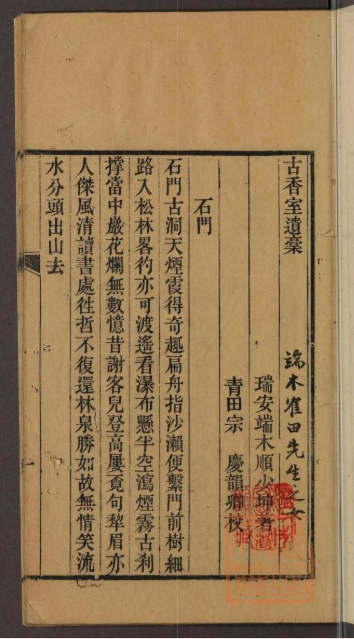 古香室遺稾
端木雀田先生之女
瑞安端木順少坤著
青田宗慶韻卿校
石門
石門古洞天煙霞得奇趣扁舟指沙瀨便繫門前樹細
路入松林畧彴亦可渡遙看瀑布懸半空瀉煙霧古刹
撑當中巖花爛無數憶昔謝客兒登高屢覓句犂眉亦
人傑風清讀書處徃哲不復還林泉勝如故無情笑流
水分頭出山去
一